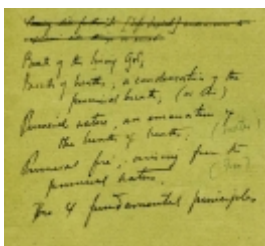 Breath of the living God,
Breath of breath, a condensation of the
primordial breath, (or Air)
Primordial waters, an emanation of
the breath of breath. (Water)
Primordial fire, arising from the
primordial waters. (Fire)
The 4 fundamental principles